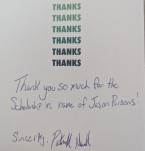 THANKS
THANKS
THANKS
THANKS
THANKS
THANKS
Thank you so much for the
Scholarship in name of Jason Parsons!
Sincerely,